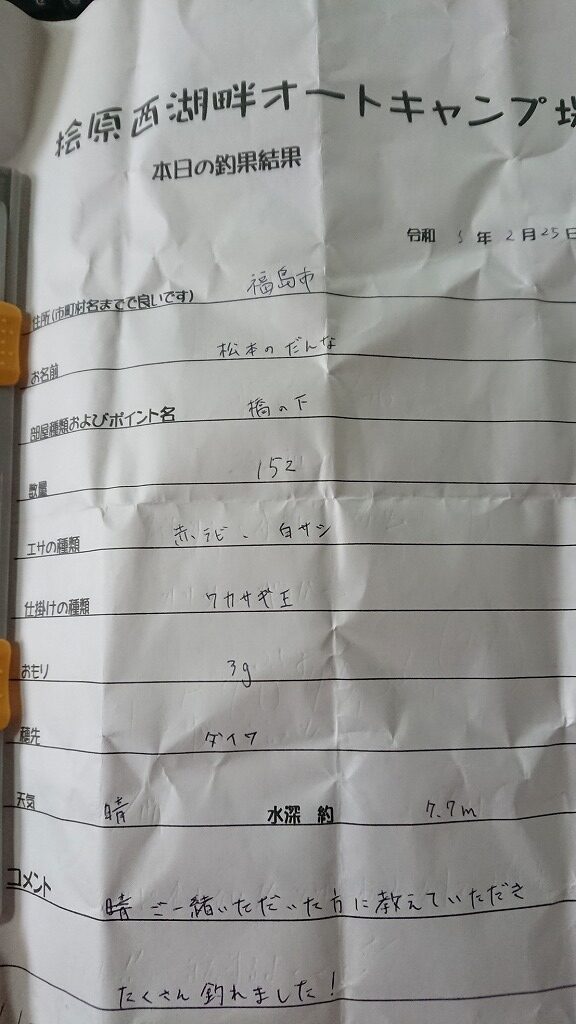 桧原西湖畔オートキャンプ場
本日の釣果結果
令和 5 年 2 月 25 日
住所(市町村名までで良いです) 福島市
お名前 松本のだんな
部屋種類およびポイント名 橋の下
数量 152
エサの種類 赤ラビ、白サシ
仕掛けの種類 ワカサギ王
おもり 3g
穂先 ダイワ
天気 晴 水深 約 7.7m
コメント 晴 ご一緒いただいた方に教えていただき
たくさん釣れました!